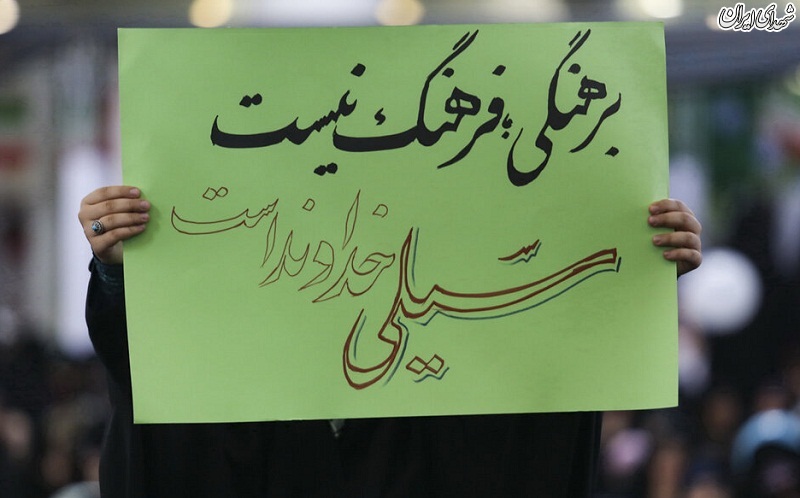 شهدای ایران
برهنگی، فرهنگ نیست
سیلی خداوند است